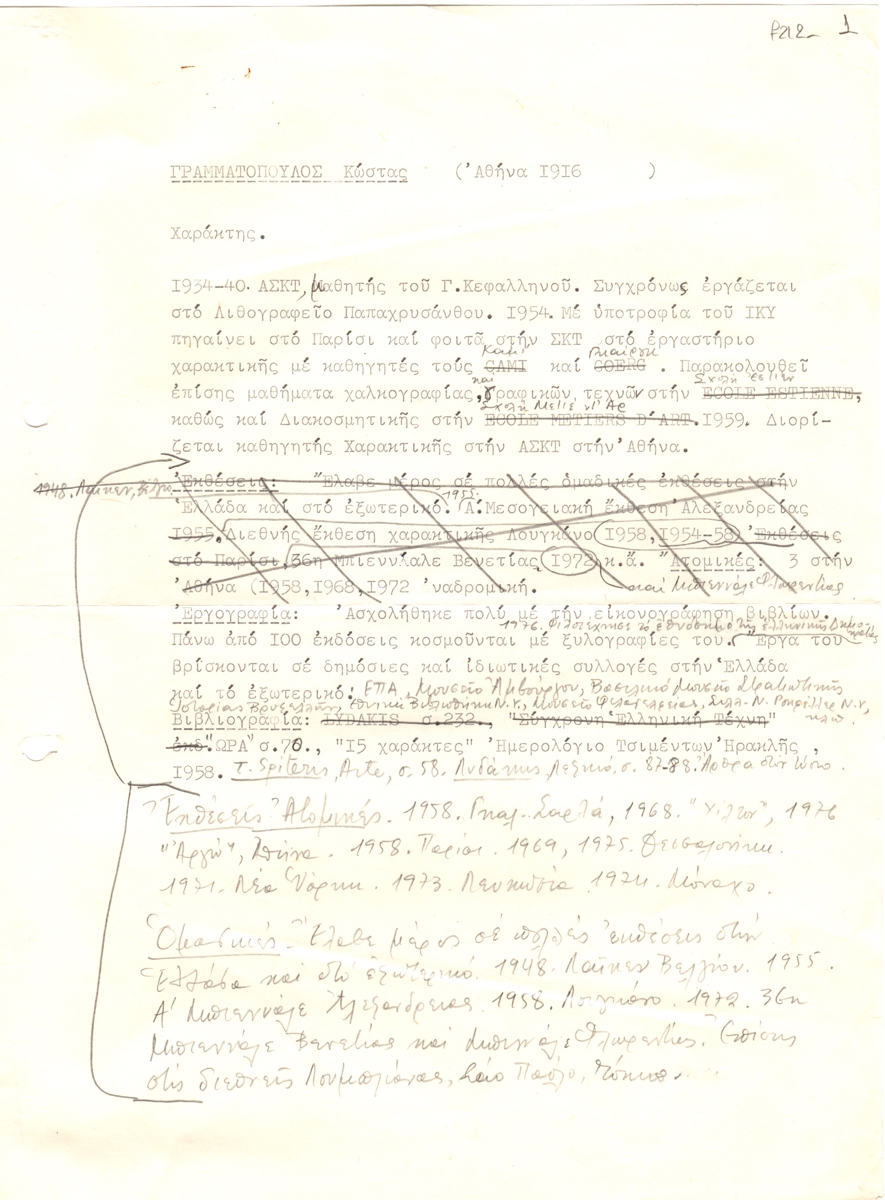 1
ΓΡΑΜΜΑΤΟΠΟΥΛΟΣ Κώστας ('Αθήνα 1916 )
Χαράκτης.
1934-40. ΑΣΚΤ, μαθητής τοῦ Γ.Κεφαλληνοῦ. Συγχρόνως ἐργάζεται
στό Λιθογραφεῖο Παπαχρυσάνθου. 1954. Μέ ὑποτροφία τοῦ ΙΚΥ
πηγαίνει στό Παρίσι καί φοιτᾶ στήν ΣΚΤ στό ἐργαστήριο
Καμί
χαρακτικῆς μέ καθηγητές τούς CAMI καί GOERG . Παρακολουθεῖ
καί Σχολή Εστιέν
ἐπίσης μαθήματα χαλκογραφίας, γραφικῶν τεχνῶν στήν ECOLE ESTIENNE,
Σχολή Μετιέ ντ' Αρ
καθώς καί Διακοσμητικῆς στήν ECOLE METIERS D'ART. 1959. Διορί-
ζεται καθηγητής Χαρακτικῆς στήν ΑΣΚΤ στήν 'Αθήνα.
1948. Λαϊκεν, Βέλγιο
'Εκθέσεις: "Ελαβε μέρος σέ πολλές ὁμαδικές ἐκθέσεις στήν
'Ελλάδα καί στό ἐξωτερικό. 1955. Α.Μεσογειακή ἔκθεση 'Αλεξανδρείας
1955. Διεθνής ἔκθεση χαρακτικῆς Λουγκάνο 1958, 1954-58 'Εκθέσεις
στό Παρίσι, 36η Μπιεννάλε Βενετίας 1972 κ.ἄ. "Ατομικές: 3 στήν
καί Μπιεννάλε Φλωρεντίας
'Αθήνα (1958,1968,1972 'ναδρομική.
'Εργογραφία: 'Ασχολήθηκε πολύ μέ τήν εἰκονογράφηση βιβλίων.
1976. Φιλοτέχνησε τό ἐθνόσημο τῆς ἑλληνικῆς Δημοκρατίας
Πάνω ἀπό 100 ἐκδόσεις κοσμοῦνται μέ ξυλογραφίες του. "Εργα του
βρίσκονται σέ δημόσιες καί ἰδιωτικές συλλογές στήν 'Ελλάδα
καί τό ἐξωτερικό: ΕΠΑ, Μουσεῖο Ἁμβούργου, Βασιλικό Μουσεῖο Στρατιωτικῆς
Ιστορίας Βρυξελλῶν, Εθνική Βιβλιοθήκη Ν.Υ., Μουσεῖο Φιλαδέλφειας, Συλλ. Ν. Ροκφέλλερ Ν.Υ, κλπ.
Βιβλιογραφία: LYDAKIS σ.232., "Σύγχρονη 'Ελληνική Τέχνη"
ἐκδ. "ΩΡΑ" σ.70., "15 χαράκτες" 'Ημερολόγιο Τσιμέντων 'Ηρακλῆς ,
1958. T. Spiteris, Arte, σ. 58. Λυδάκης, Λεξικό, σ. 87-88. Ἄρθρα στόν τύπο.
'Εκθέσεις 'Ατομικές. 1958. Γκαλ. Σαρλά, 1968. "Χίλτον", 1976
"Ἀργώ", Ἀθήνα. 1958. Παρίσι. 1969, 1975. Θεσσαλονίκη.
1971. Νέα Ὑόρκη. 1973. Λευκωσία. 1974. Μόναχο.
Ὁμαδικές. Ἔλαβε μέρος σέ πολλές ἐκθέσεις στήν
Ἑλλάδα καί στό ἐξωτερικό. 1948. Λαϊκεν Βελγίου. 1955.
Α' Μπιεννάλε Ἀλεξάνδρειας. 1958. Λουγκάνο. 1972. 36η
Μπιεννάλε Βενετίας καί Μπιεννάλε Φλωρεντίας. Ἐπίσης
στίς διεθνεῖς Λουμπλιάνας, Σάο Πάολο, Τόκιο.